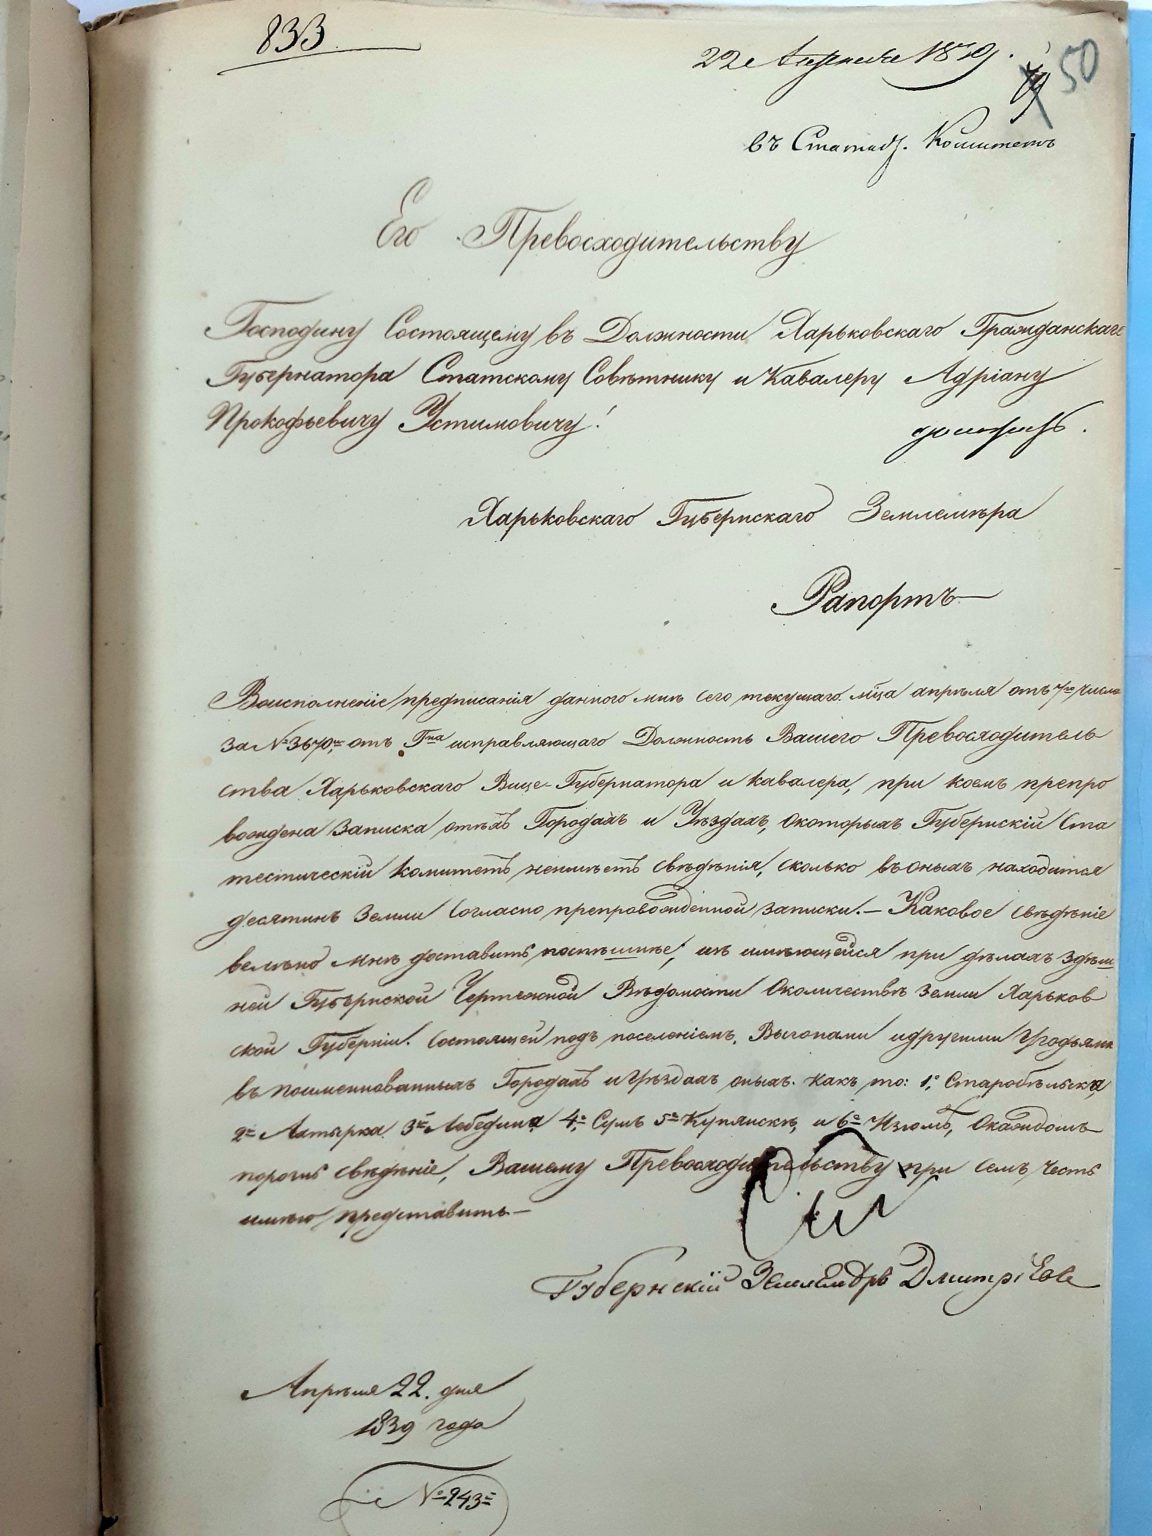 833
22 Апреля 1839.
50
въ Статис. Комитетъ
Его Превосходительству
Господину Состоящему въ Должности Харьковскаго Гражданскаго
Губернатора Статскому Совѣтнику и Кавалеру Адріану
Прокофьевичу Устимовичу!
Харьковскаго Губернскаго Землемѣра
Рапортъ
Воисполненіе предписанія даннаго мнѣ сего текущаго мца апрѣля отъ 7го числа
за № 3670м отъ Гна исправляющаго Должность Вашего Превосходитель
ства Харьковскаго Вице-Губернатора и кавалера, при коемъ препро
вождена Записка отѣхъ Городахъ и Уѣздахъ, окоторыхъ Губернскій Ста
тестическій комитетъ неимѣетъ свѣдѣнія, сколько въоныхъ находится
десятинъ Земли Согласно препровожденной записки.— Каковое свѣдѣніе
велѣно мнѣ доставить поспѣшнѣе, изъ имѣющейся при дѣлахъ здѣш
ней Губернской Чертежной Вѣдомости Околичествѣ Земли Харьков
ской Губерніи. Состоящей подъ поселеніемъ, Выгонами идругими Угодьями
въ поименнованныхъ Городахъ иУѣздахъ оныхъ. какъ то: 1е Старобѣльска,
2е Ахтырка 3е Лебедина 4е Сумъ 5е Купянскъ, и 6е Изюмъ, Окаждомъ
порознь свѣдѣніе, Вашему Превосходительству при семъ честь
имѣю представить—
Губернскій Землемѣръ Дмитріевъ
Апрѣля 22. дня
1839 года
№ 243е